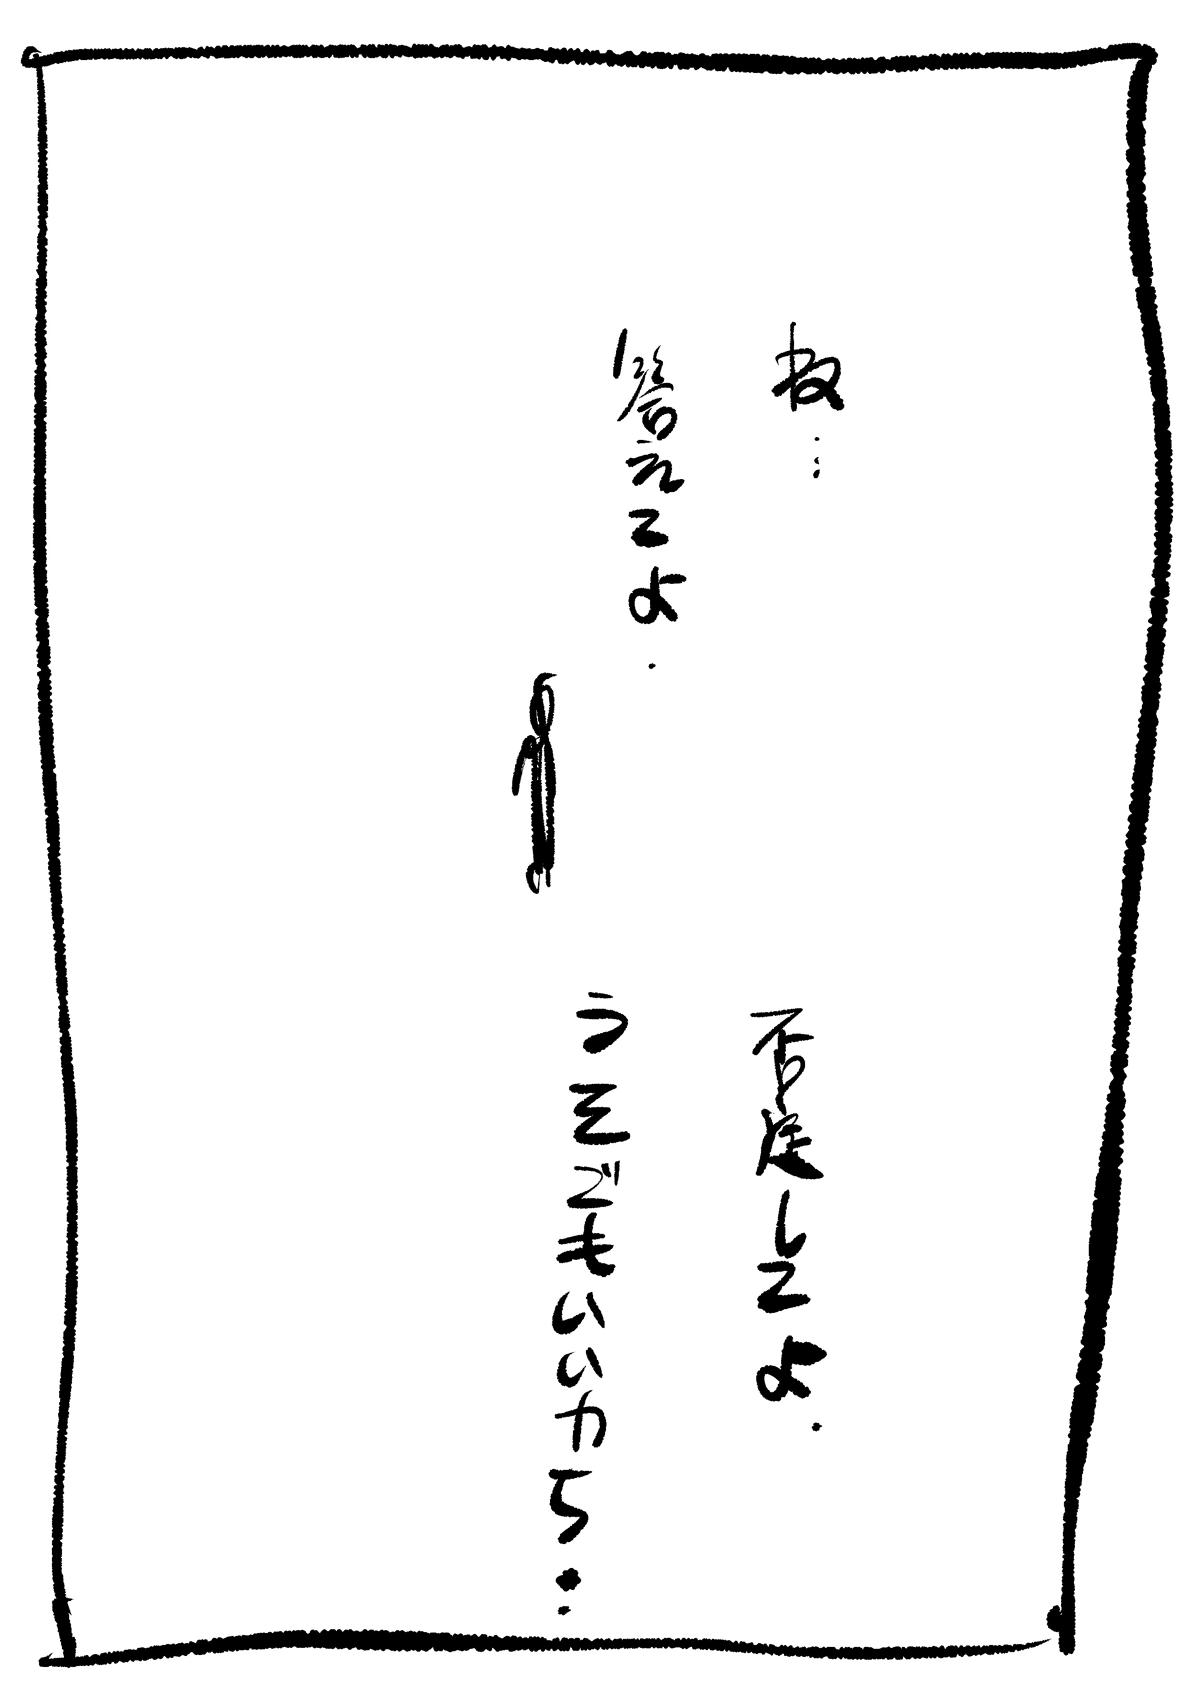 ね…
答えてよ.
否定してよ.
うそでもいいから..